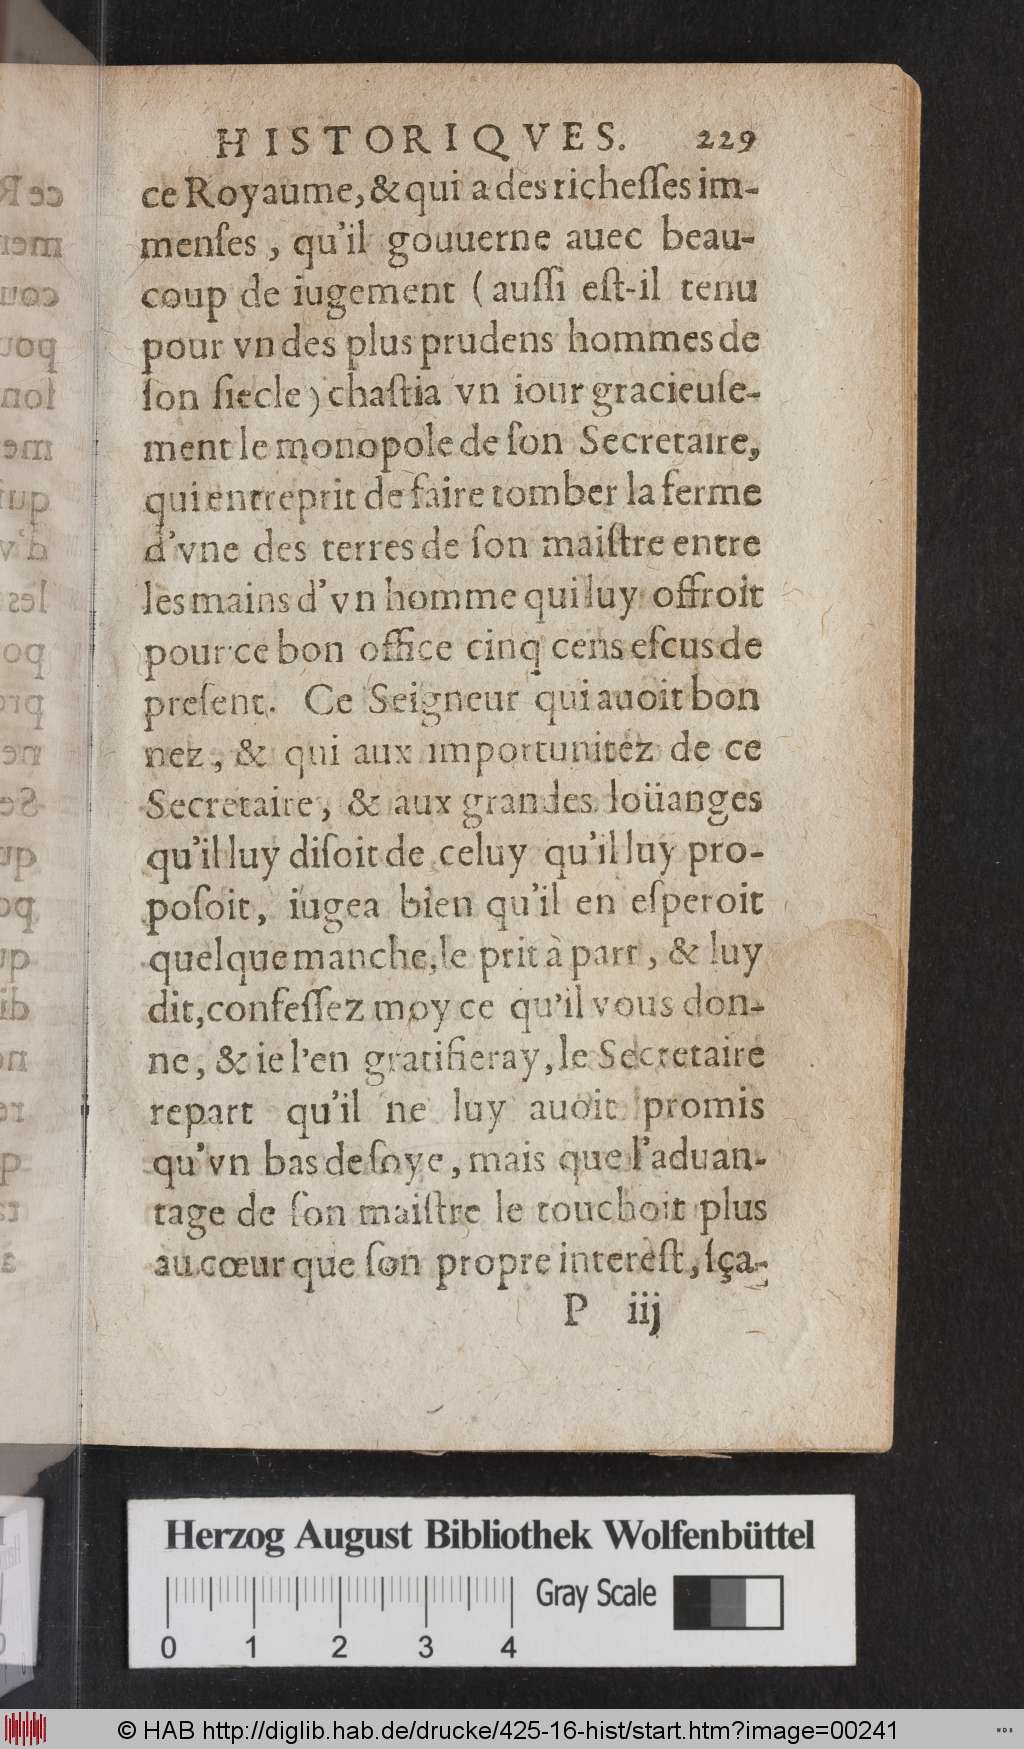 HISTORIQVES. 229
ce Royaume, & qui a des richeſſes im-
menſes, qu'il gouuerne auec beau-
coup de iugement (auſſi eſt-il tenu
pour vn des plus prudens hommes de
ſon ſiecle) chaſtia vn iour gracieuſe-
ment le monopole de ſon Secretaire,
qui entreprit de faire tomber la ferme
d'vne des terres de ſon maiſtre entre
les mains d'vn homme qui luy offroit
pour ce bon office cinq cens eſcus de
preſent. Ce Seigneur qui auoit bon
nez, & qui aux importunitéz de ce
Secretaire, & aux grandes loüanges
qu'il luy diſoit de celuy qu'il luy pro-
poſoit, iugea bien qu'il en eſperoit
quelque manche, le prit à part, & luy
dit, confeſſez moy ce qu'il vous don-
ne, & ie l'en gratifieray, le Secretaire
repart qu'il ne luy auoit promis
qu'vn bas de ſoye, mais que l'aduan-
tage de ſon maiſtre le touchoit plus
au cœur que ſon propre intereſt, ſça-
P iij
Herzog August Bibliothek Wolfenbüttel
Gray Scale
0 1 2 3 4
© HAB http://diglib.hab.de/drucke/425-16-hist/start.htm?image=00241